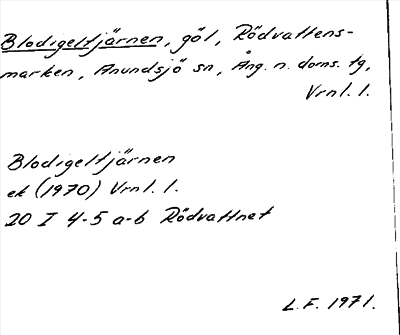 Blodigeltjärnen, göl, Rödvattens-
marken, Anundsjö sn, Ång. n. doms. tg,
Vrnl. l.
Blodigeltjärnen
ek (1970) Vrnl. l.
20 I 4-5 a-b Rödvattnet
L.F. 1971.